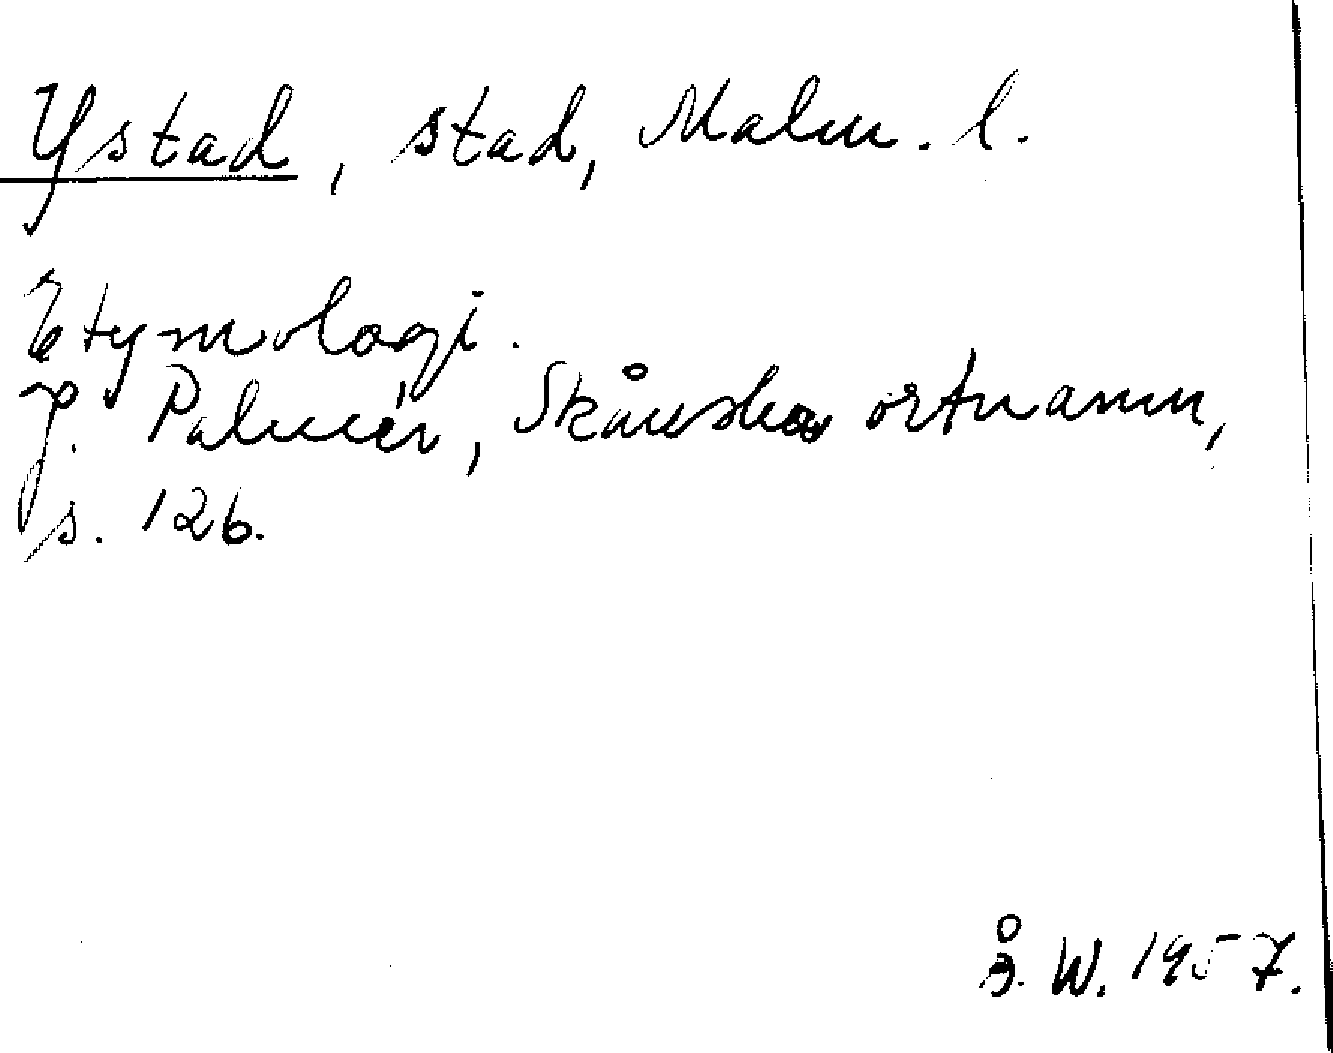 Ystad, stad, Malm. l.
Etymologi.
J. Palmér, Skånska ortnamn,
s. 126.
Å. W. 1957.